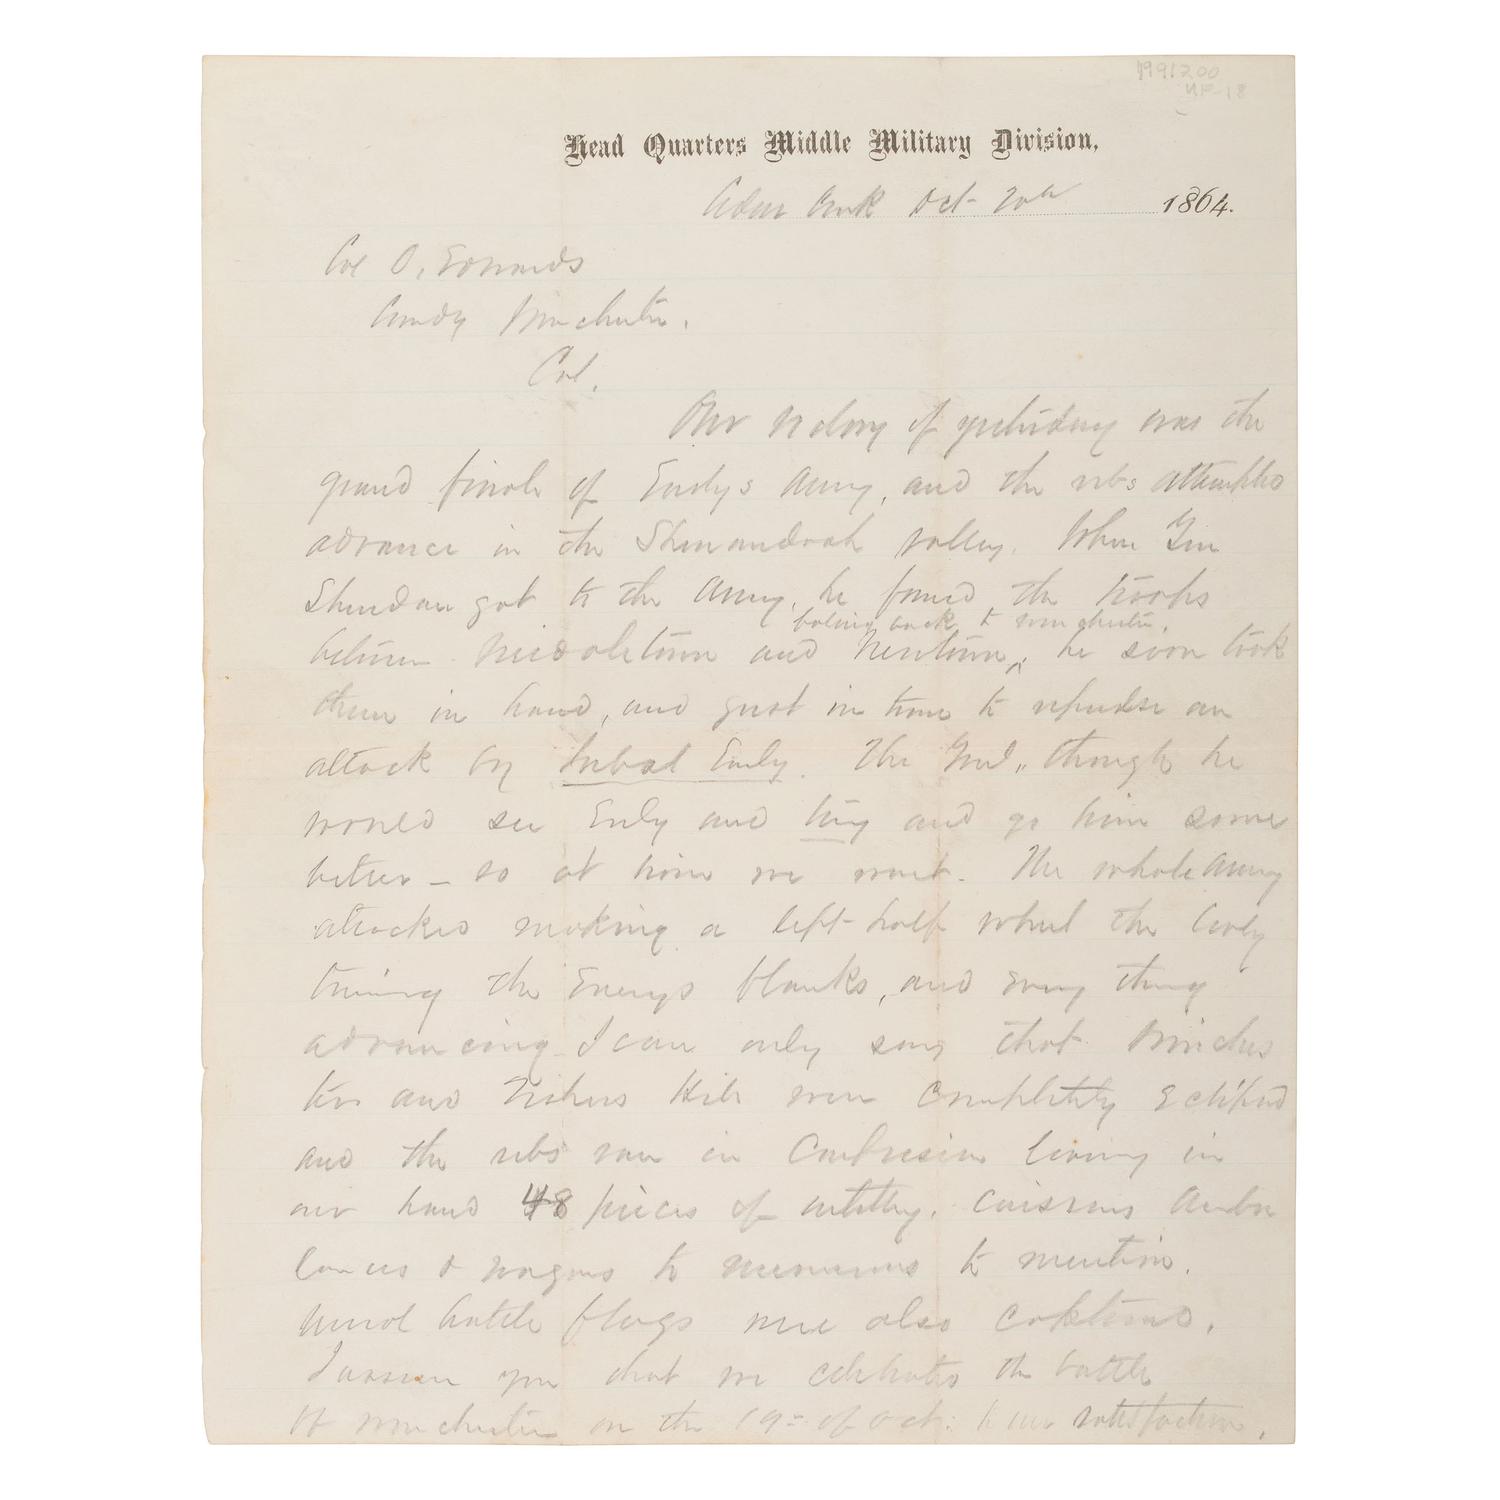 1991200
NF-18
Head Quarters Middle Military Division,
Cedar Creek Oct 20th 1864.
Col O. Edwards
Comdg Winchester.
Col.
Our victory of yesterday was the
grand finale of Earlys army, and the rebs attempted
advance in the Shenandoah valley. When Gen
Sheridan got to the army, he found the troops
falling back to winchester,
between Middletown and Newtown, he soon took
them in hand, and just in time to repulse an
attack by Jubal Early. The Genl, thought he
would see Early and and go him some
better - so at him we went. The whole army
attacked making a left half wheel the Cavly
turning the Enemys flanks, and every thing
advancing I can only say that Winches
ter and Fishers Hill were completely Eclipsed
and the rebs ran in Confusion leaving in
our hand 48 pieces of artillery. Caissons Ambu
lances & wagons to numerous to mention.
battle flags were also captured.
I assure you that we celebrated the battle
of winchester on the 19= of Oct: to our satisfaction.